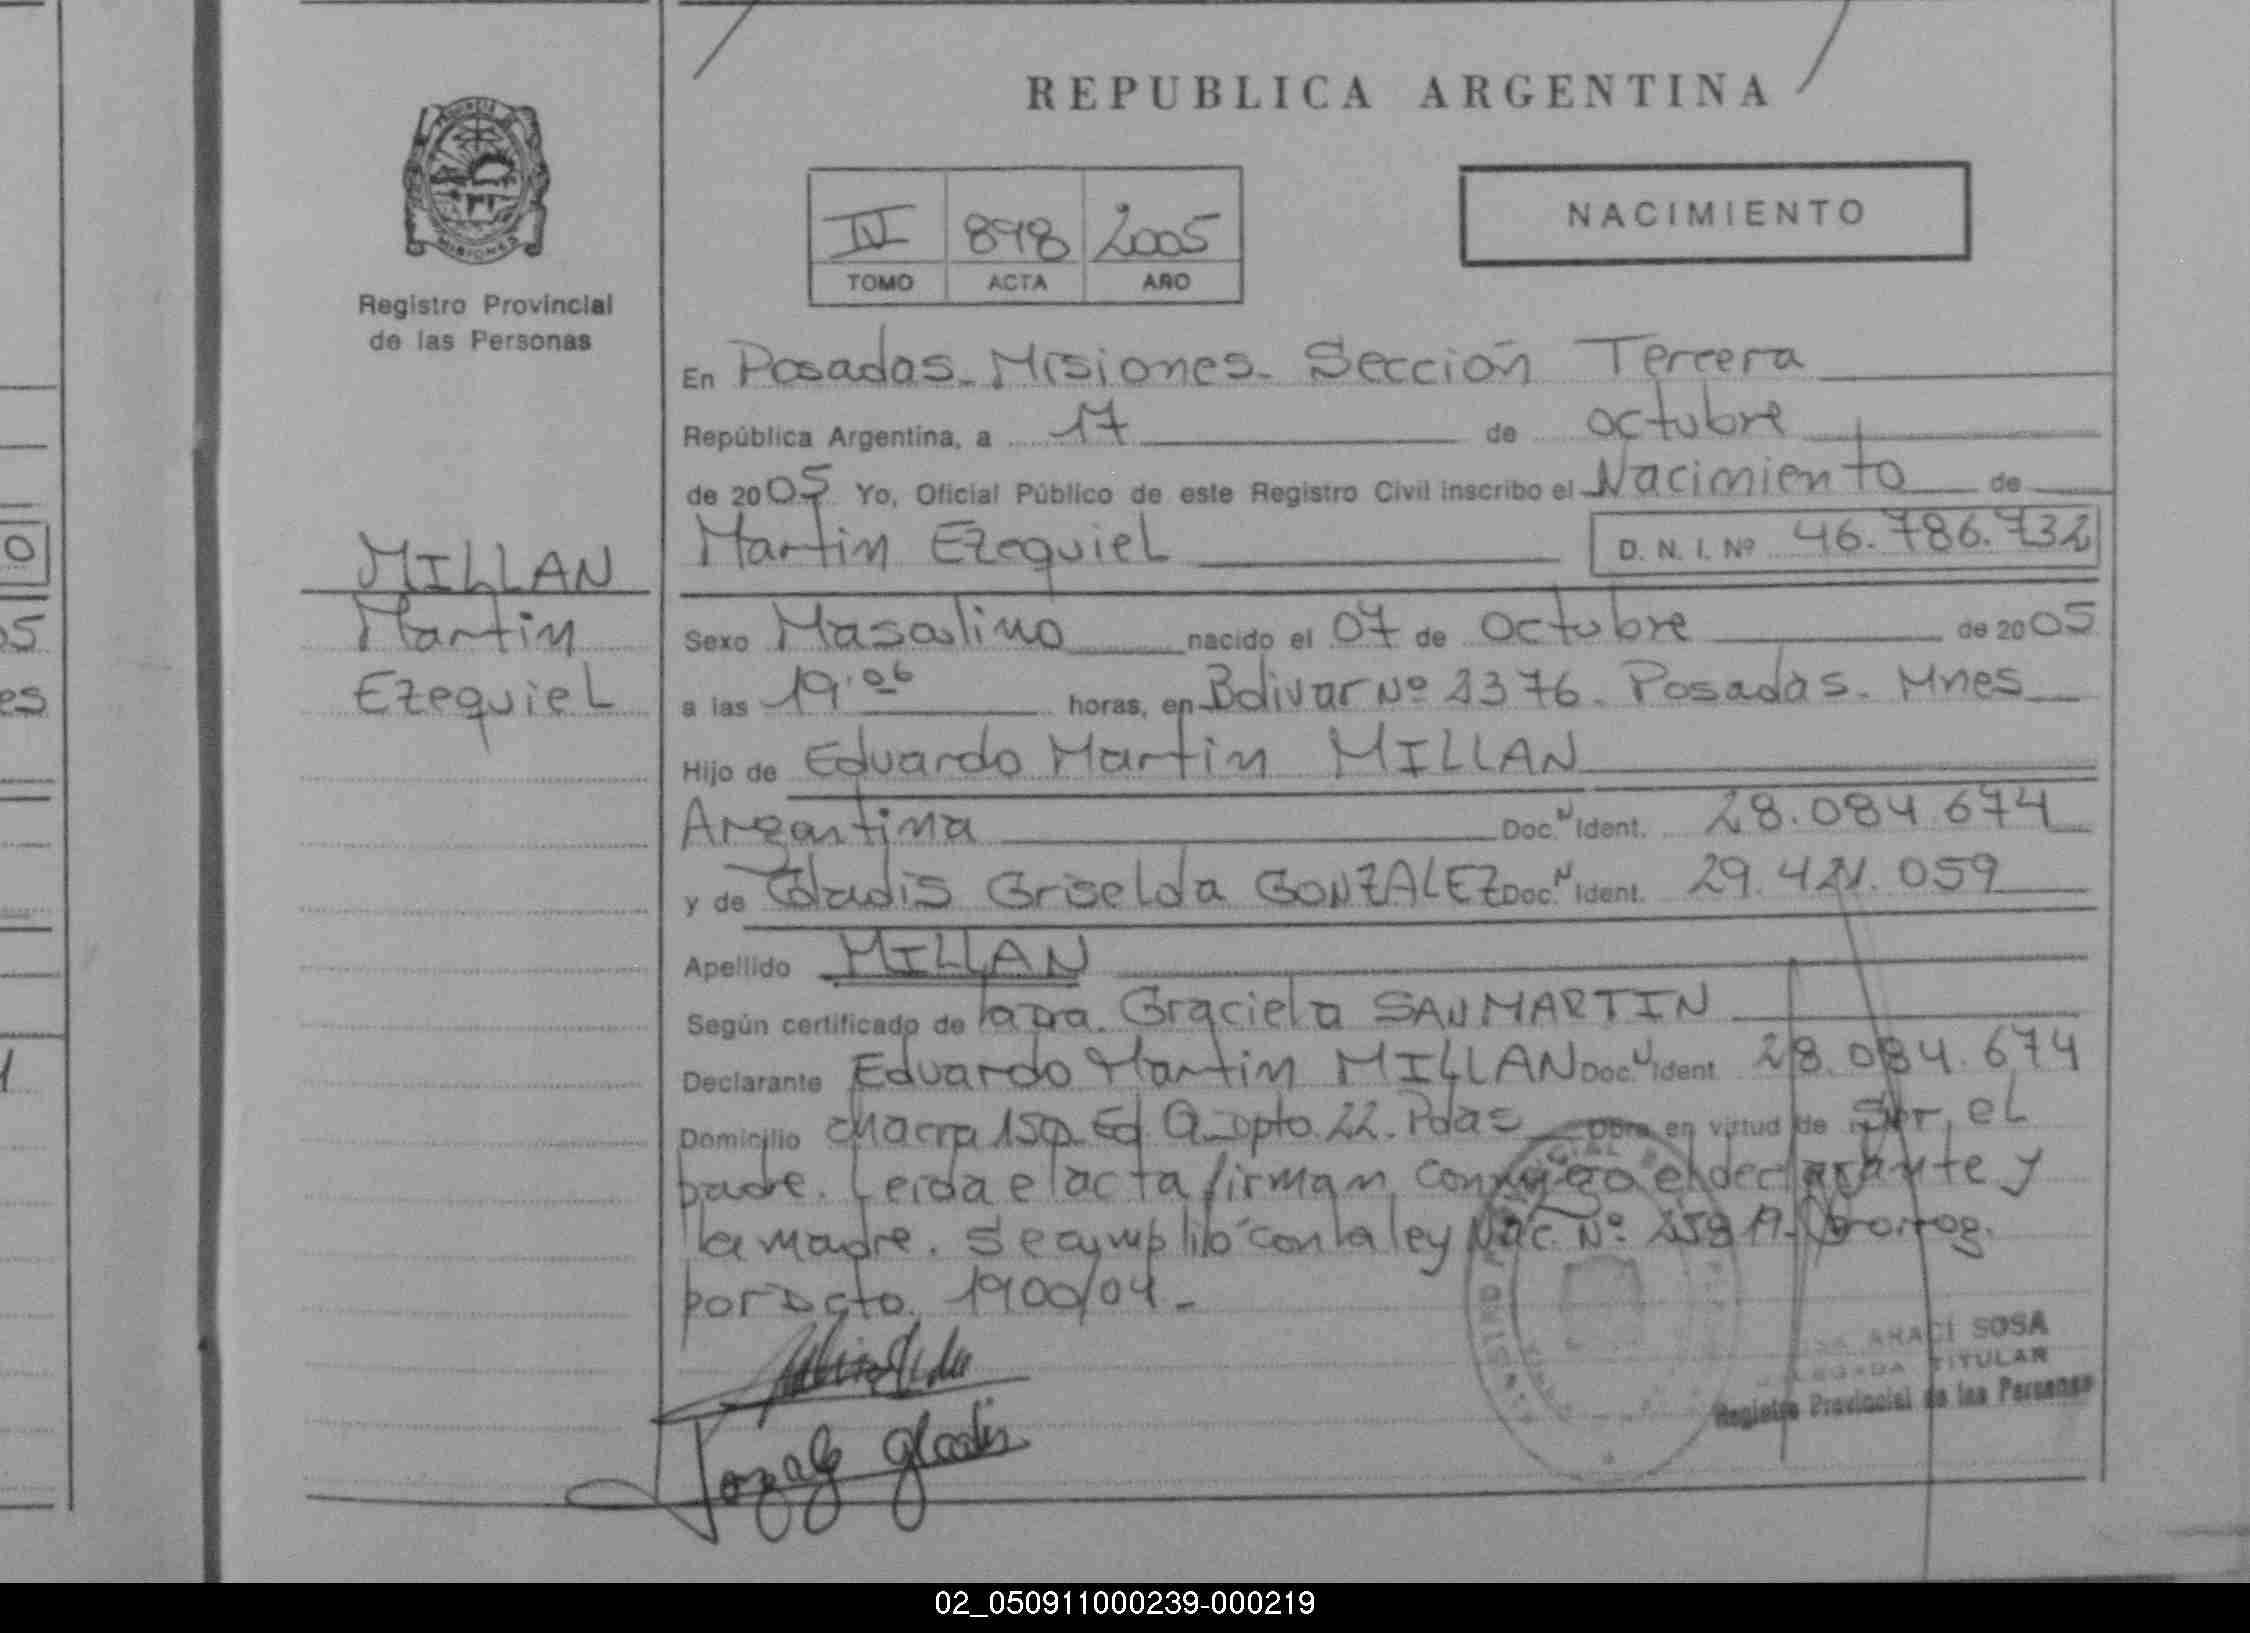 REPUBLICA ARGENTINA
PROVINCIA
MISIONES
Registro Provincial
de las Personas
IV 898 2005
TOMO ACTA AÑO
NACIMIENTO
En Posadas - Misiones - Sección Tercera
República Argentina, a 17 de octubre
de 2005 Yo, Oficial Público de este Registro Civil inscribo el Nacimiento de
Martin Ezequiel D. N. I. Nº 46.786.732
MILLAN
Martin
Ezequiel
Sexo Masculino nacido el 07 de Octubre de 2005
a las 19.06 horas, en Bolivar Nº 2376. Posadas. Mnes
Hijo de Eduardo Martin MILLAN
Argentina Doc. N Ident. 28.084.674
y de Gladis Griselda GONZALEZ Doc. N Ident. 29.421.059
Apellido MILLAN
Según certificado de la Dra. Graciela SANMARTIN
Declarante Eduardo Martin MILLAN Doc. N Ident. 28.084.674
Domicilio chacra 150 Ed. Dpto. 22. Pdas Obra en virtud de Ser el
padre. Leida el acta firman conmigo el declarante y
la madre. Se cumplió con la ley Nac. Nº
por Dcto. 1900/04.-
Gonzalez gladis
ARACÍ SOSA
DELEGADA TITULAR
Registro Provincial de las Personas
02_050911000239-000219